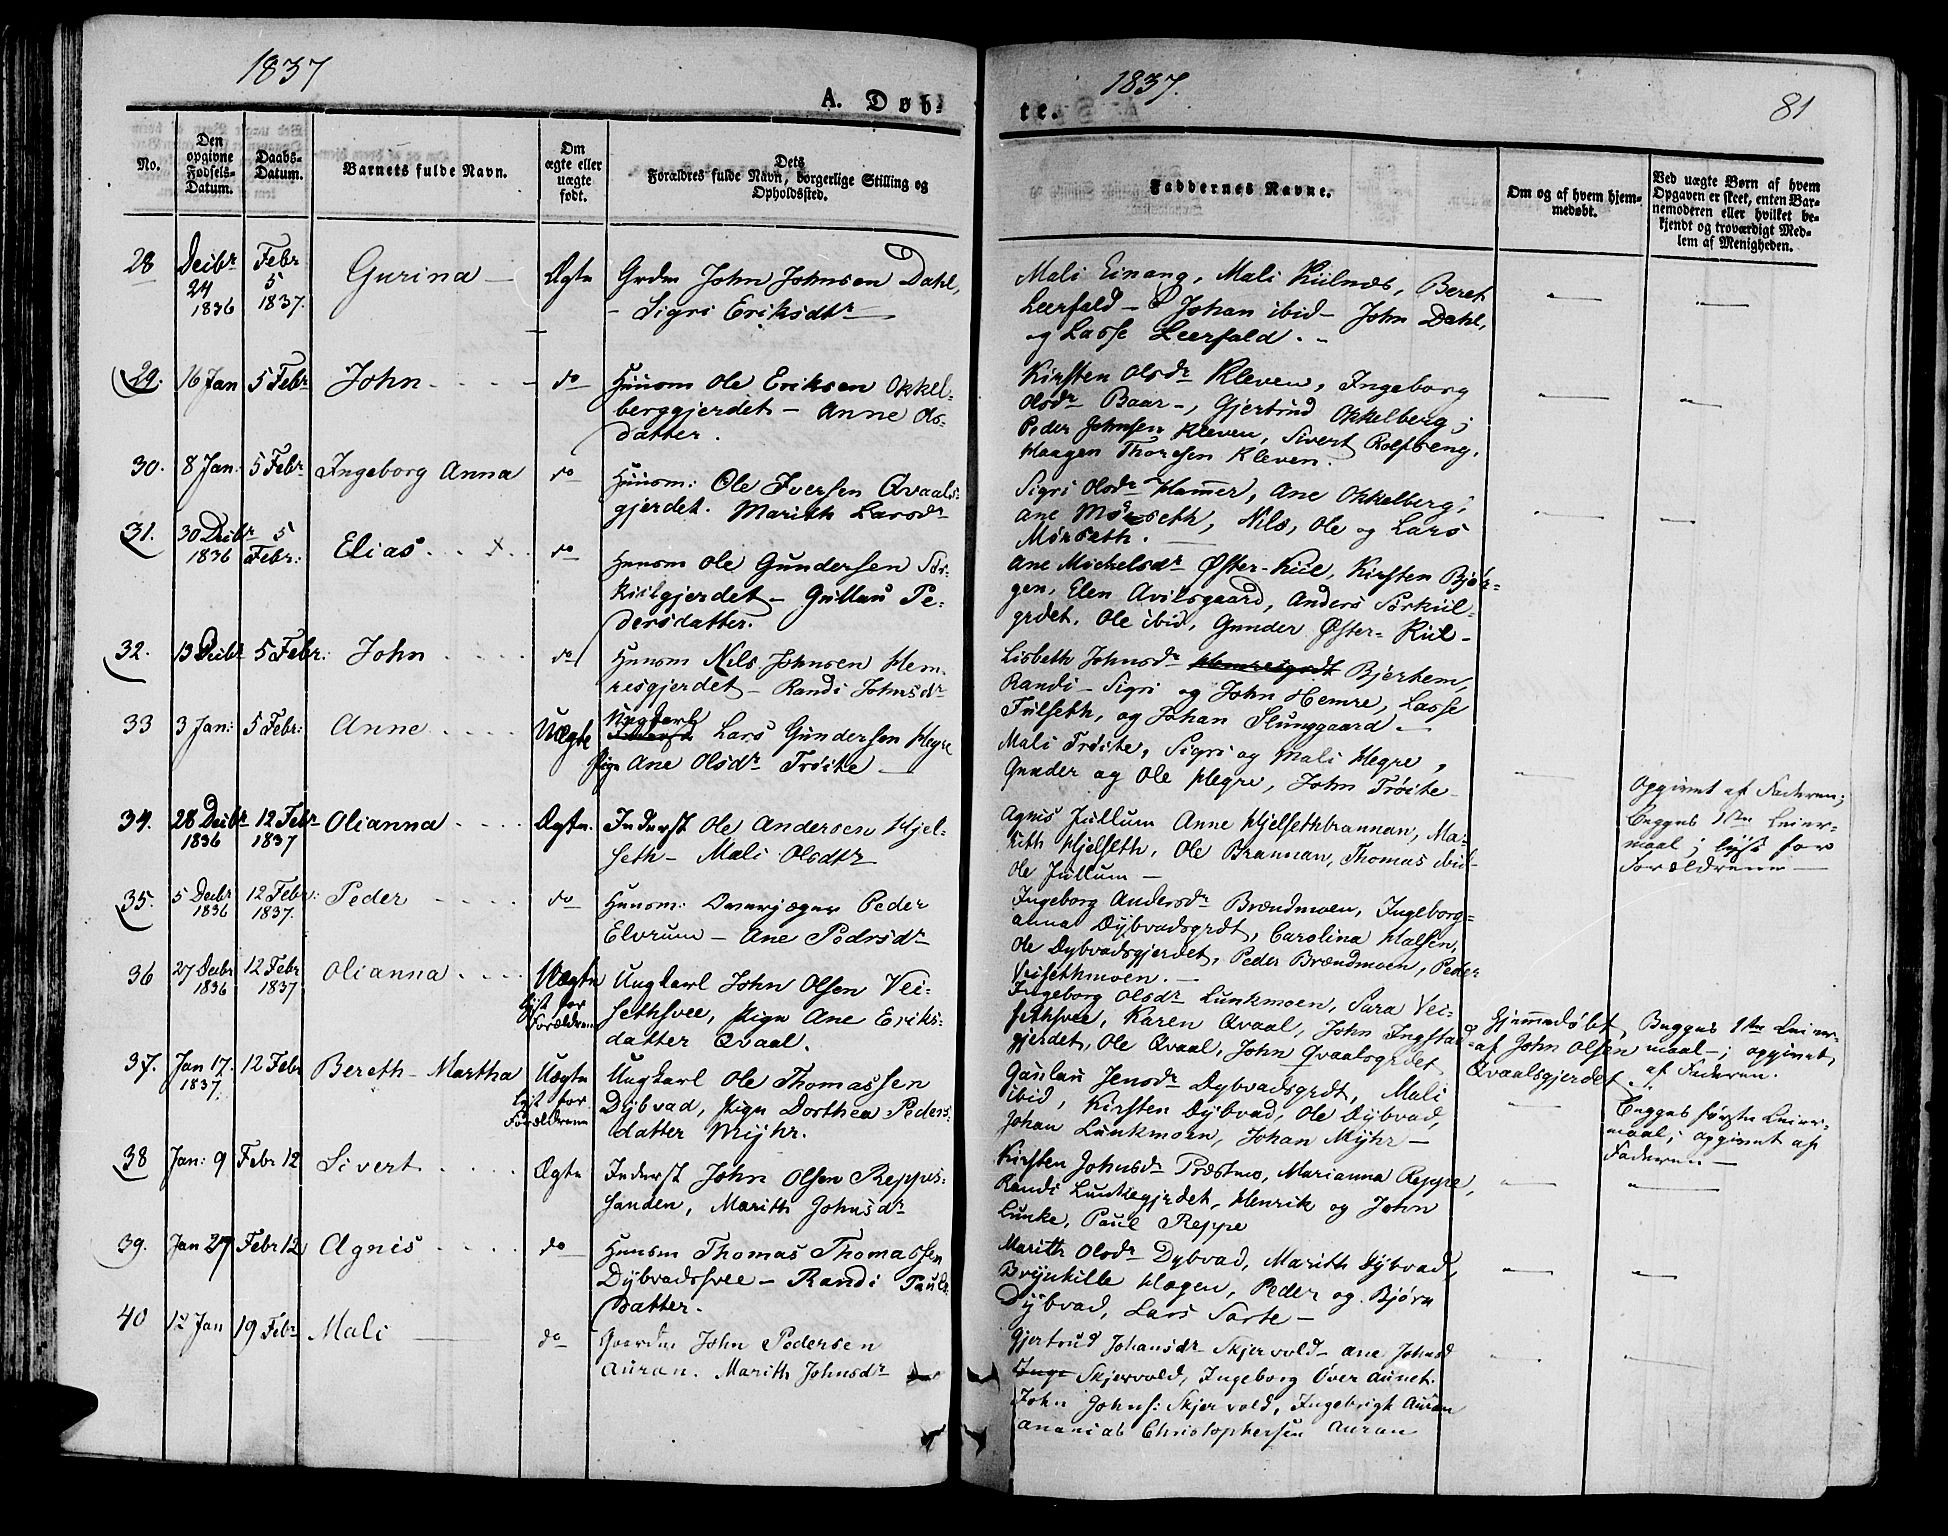 1837
A. Døb-
No.
Den
opgivne
Fødsels-
Datum.
Daabs-
Datum.
Barnets fulde Navn.
Om
ægte eller
uægte
født.
Dets
Forældres fulde Navn, borgerlige Stilling og
Opholdssted.
28
Decbr
24
1836
Febr
5
1837.
Gurina
Ægte
Grdm John Johnsen Dahl,
- Sigri Eriksdtr
29.
16 Jan
5 Febr
John
do
Huusm Ole Eriksen Okkel-
berggjerdet - Anne Ols-
datter.
30.
8 Jan:
5 Febr
Ingeborg Anna
do
Huusm: Ole Iversen Qvaals-
gjerdet. Marith Larsdr
31.
30 Decbr
1836
5
Febr:
Elias
do
Huusm Ole Gundersen Sør-
kiilgjerdet - Gullau Pe-
dersdatter.
32.
13 Decbr
5 Febr:
John
do
Huusm Nils Johnsen Hem-
resgjerdet - Randi Johnsdr
33
3 Jan:
5 Febr:
Anne
Uægte
Ungkarl
Lars Gundersen Hegre
Pige Ane Olsdr Trøite
34.
28 Decbr
1836
12 Febr
1837
Olianna
Ægte.
Inderst Ole Andersen Hjel-
seth - Mali Olsdtr
35.
5 Decbr
1836
12 Febr:
1837.
Peder
do
Huusm: Qværjæger Peder
Elvrum - Ane Pedrsdr
36
27 Decbr
1836
12 Febr
1837
Olianna
Uægte
lyst for
Forældrene
Ungkarl John Olsen Vei-
sethsvee, Pige Ane Eriks-
datter Qvaal.
37.
Jan 17.
1837.
12 Febr
Bereth Martha
Uægte
lyst for
Forældrene
Ungkarl Ole Thomassen
Dybvad, Pige Dorthea Peders-
datter Myhr.
38
Jan: 9
Febr 12
Sivert
Ægte
Inderst John Olsen Reppes-
sanden, Marith Johnsdr
39.
Jan 27
Febr 12
Agnis
do
Huusm Thomas Thomassen
Dybvadsvee - Randi Pauls-
datter.
40
12 Jan
19 Febr
Mali
do
Gaardm John Pedersen
Auran. Marith Johnsdr
1837.
te.
81
Faddernes Navne.
Om og af hvem hjem-
medøbt.
Ved uægte Børn af hvem
Opgaven er skeet, enten Bar-
nemoderen eller hvilket be-
kjendt og troværdigt Med-
lem af Menigheden.
Mali Einang, Mali Kiilnæs, Beret
Leerfald - Johan ibid - John Dahl,
og Lasse Leerfald.
Kirsten Olsdr Kleven, Ingeborg
Olsdr Baar -, Gjertrud Okkelberg;
Peder Johnsen Kleven, Sivert Rolfseng,
Haagen Thoresen Kleven.
Sigri Olsdr Hammer, Ane Okkelberg;
Ane Mørseth, Nils, Ole og Lars
Mørseth.
Ane Michelsdr Øfter-Kiil, Kirsten Bjør-
gen, Elen Avilsgaard, Anders Sørkiil-
grdet, Ole ibid, Gunder Øfter-Kiil -
Lisbeth Johnsdr Bjertem,
Randi - Sigri og John Hemre, Lasse
Fulseth, og Johan Slunggaard -
Mali Trøite, Sigri og Mali Hegre,
Gunder og Ole Hegre, John Trøite -
Opgivet af Faderen;
Begges 1ste Leier-
maal; lyst for
Forældrene
Agnis Jullum Anne Hjelsethbrannan, Ma-
rith Hjelseth, Ole Brannan, Thomas ibid
Ole Jullum -
Ingeborg Andersdr Brændmoen, Ingeborg-
anna Dybvadsgrdt, Carolina Halsen,
Ole Dybvadsgjerdet, Peder Brændmoen, Peder
Veisethmoen.
Ingeborg Olsdr Lunkmoen, Sara Vei-
sethsvee, Karen Qvaal, John Ingstad-
gjerdet, Ole Qvaal, John Qvaalsgrdet
Hjemmedøbt
af John Olsen
Qvaalsgjerdet
Begges 1ste Leier-
maal -; opgivet
af Faderen.
Gaulau Jensdr Dybvadsgrdt, Mali
ibid, Kirsten Dybvad, Ole Dybvad,
Johan Lunkmoen, Johan Myhr -
Begges første Leier-
maal; opgivet af
Faderen -
Kirsten Johnsdr Præstmo, Marianna Reppe,
Randi Lunkegjerdet, Henrik og John
Lunke, Paul Reppe
Marith Olsdr Dybvad, Marith Dybvad,
Brynhille Hogen, Peder og Bjørn
Dybvad, Lars Sorte -
Gjertrud Johansdr Skjervold - Ane Johnsd
Inge Skjervold, Ingeborg Øver Aunet.
John Johns: Skjervold, Ingebrigt Auran
Ananias Christophersen Auran